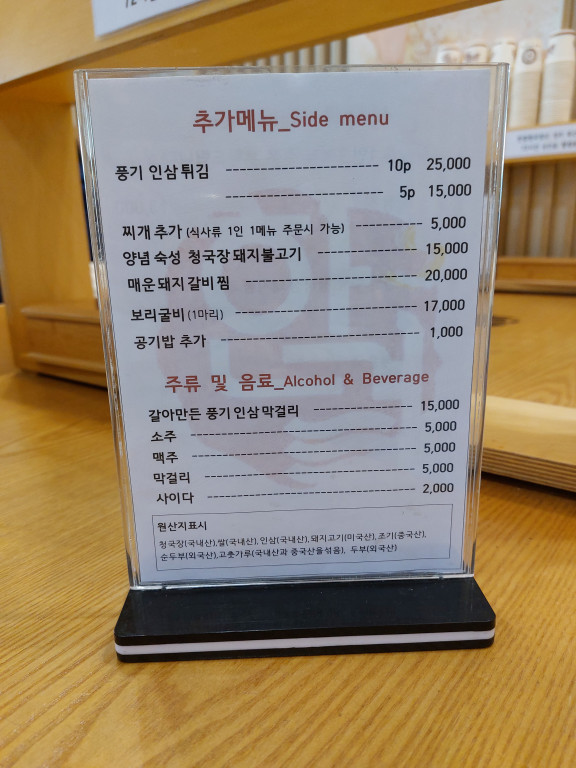 추가메뉴_Side menu
풍기 인삼 튀김 ---------------------- 10p 25,000
---------------------- 5p 15,000
찌개 추가 (식사류 1인 1메뉴 주문시 가능) ---------- 5,000
양념 숙성 청국장 돼지불고기 ------------- 15,000
매운돼지갈비찜 ------------------- 20,000
보리굴비(1마리) -------------------- 17,000
공기밥 추가 ---------------------- 1,000
주류 및 음료_Alcohol & Beverage
갈아만든 풍기인삼막걸리 -------------- 15,000
소주 ------------------------------ 5,000
맥주 ------------------------------ 5,000
막걸리 ---------------------------- 5,000
사이다 ---------------------------- 2,000
원산지표시
청국장(국내산),쌀(국내산),인삼(국내산),돼지고기(미국산),조기(중국산),
순두부(외국산),고춧가루(국내산과 중국산을섞음), 두부(외국산)